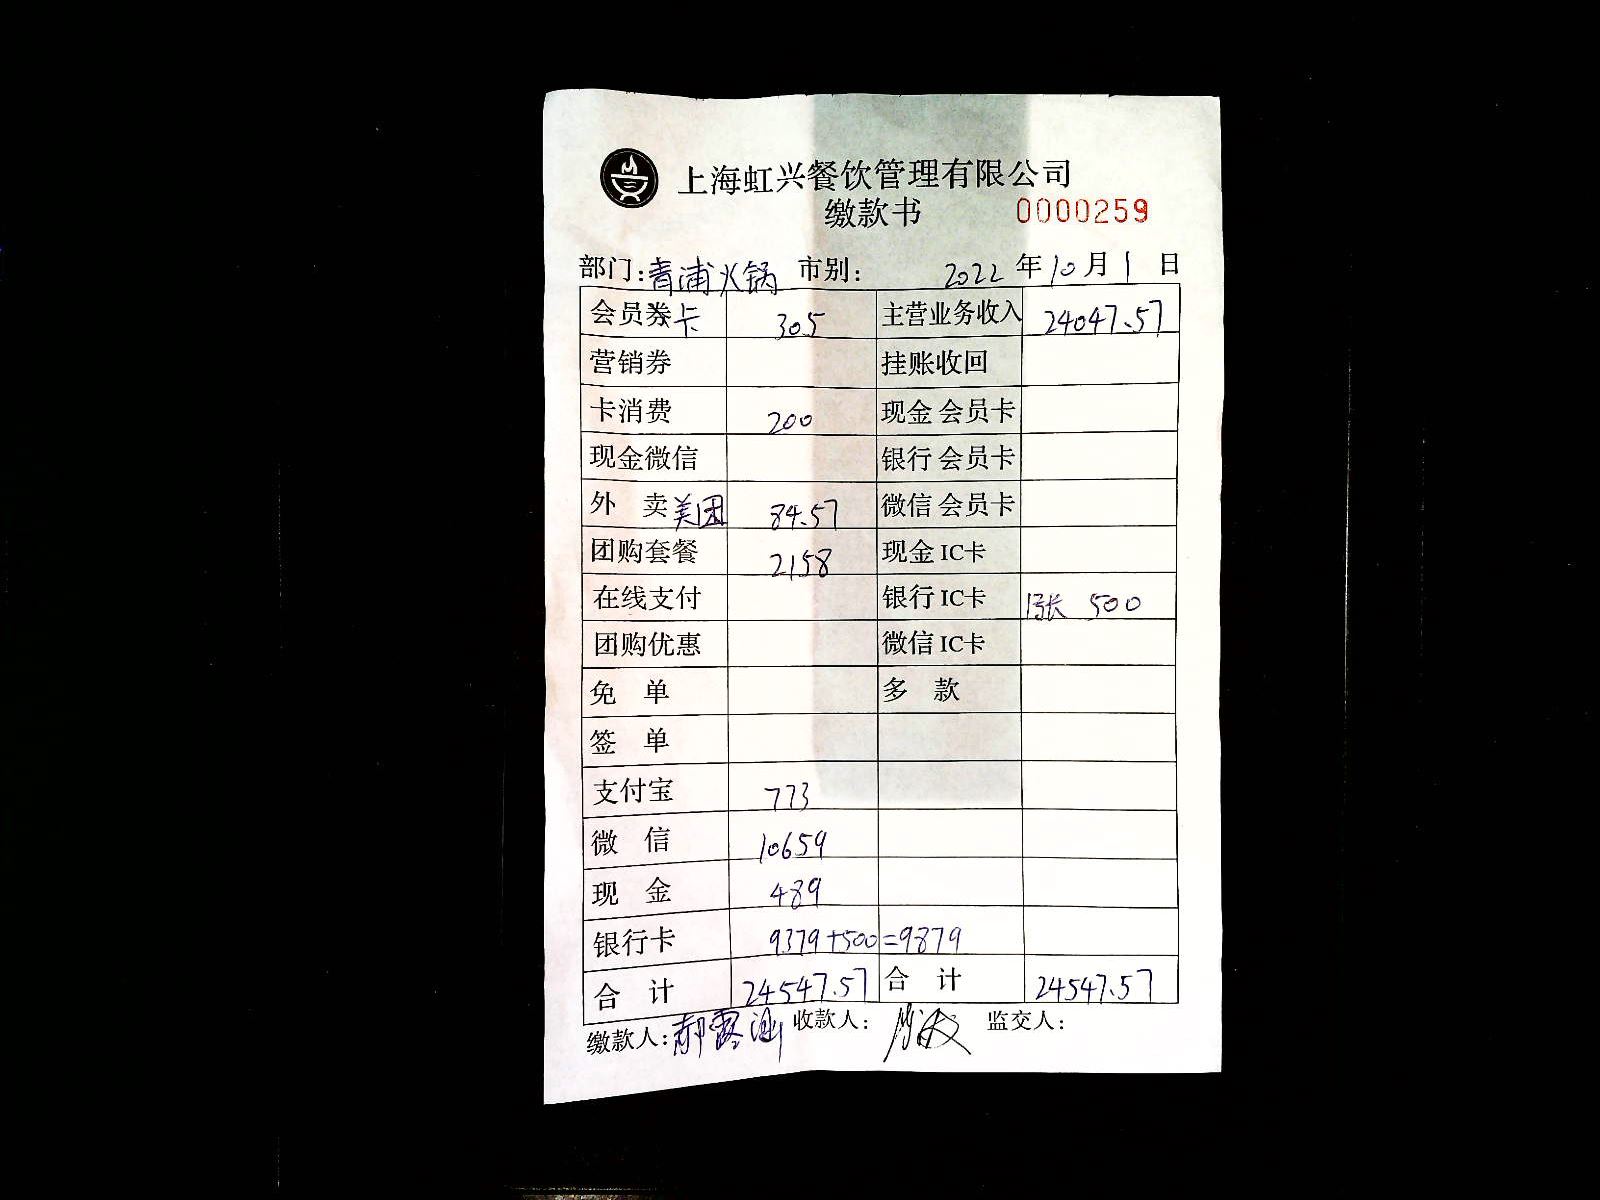 上海虹兴餐饮管理有限公司
缴款书 0000259
部门:青浦火锅 市别: 2022年10月1日
会员券卡 305 主营业务收入 24047.57
营销券 挂账收回
卡消费 200 现金 会员卡
现金微信 银行 会员卡
外 卖 美团 84.57 微信 会员卡
团购套餐 2158 现金 IC卡
在线支付 银行 IC卡 500
团购优惠 微信 IC卡
免 单 多 款
签 单
支付宝 773
微 信 10659
现 金 489
银行卡 9379+500=9879
合 计 24547.57 合 计 24547.57
缴款人:郝露 收款人: 监交人: